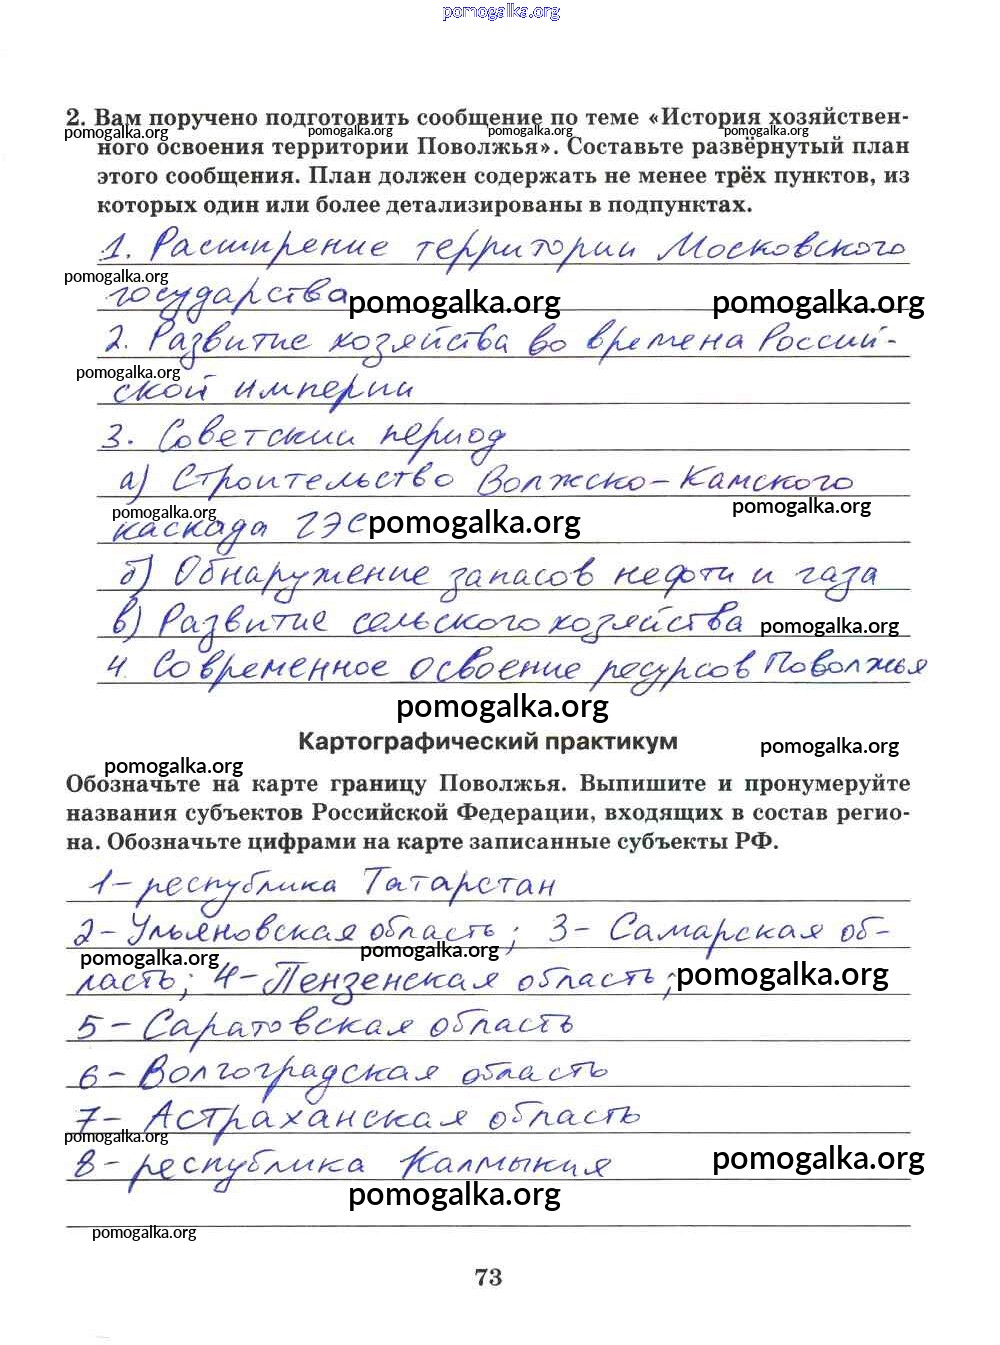 pomogalka.org
2. Вам поручено подготовить сообщение по теме «История хозяйствен-
pomogalka.org pomogalka.org pomogalka.org pomogalka.org
ного освоения территории Поволжья». Составьте развёрнутый план
этого сообщения. План должен содержать не менее трёх пунктов, из
которых один или более детализированы в подпунктах.
1. Расширение территории Московского
pomogalka.org
государства pomogalka.org pomogalka.org
2. Развитие хозяйства во времена Россий-
pomogalka.org
ской империи
3. Советский период
а) Строительство Волжско-Камского
pomogalka.org pomogalka.org
каскада ГЭС pomogalka.org
б) Обнаружение запасов нефти и газа
в) Развитие сельского хозяйства pomogalka.org
4. Современное освоение ресурсов Поволжья
pomogalka.org
Картографический практикум pomogalka.org
pomogalka.org
Обозначьте на карте границу Поволжья. Выпишите и пронумеруйте
названия субъектов Российской Федерации, входящих в состав регио-
на. Обозначьте цифрами на карте записанные субъекты РФ.
1 – республика Татарстан
2 – Ульяновская область; 3 – Самарская об-
pomogalka.org pomogalka.org
ласть; 4 – Пензенская область; pomogalka.org
5 – Саратовская область
6 – Волгоградская область
7 – Астраханская область
pomogalka.org
8 – республика Калмыкия pomogalka.org
pomogalka.org
pomogalka.org
73